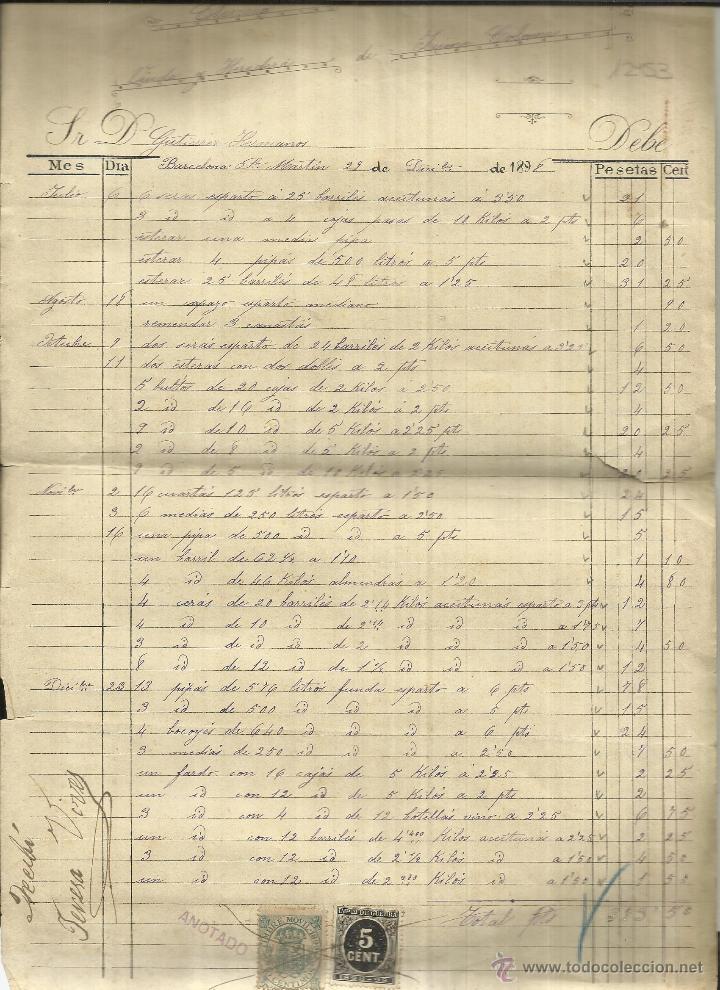 Viuda y Herederos de Jaime Colomer
1253
Sr. D. Gutierrez Hermanos Debe
Mes Dia Barcelona Sn. Martin 29 de Dicibre de 1898 Pesetas Cent
Julio 6 6 seras esparto á 25 barriles aceitunas á 3'50 21
3 id id a 4 cajas pasas de 10 Kilos a 2 pts 6
esterar una media pipa 2 50
esterar 4 pipas de 500 litros a 5 pts 20
esterar 25 barriles de 48 litros a 1'25 31 25
Agosto 18 un capazo esparto mediano 90
remendar 3 canastas 1 20
Setiebre 9 dos seras esparto de 24 barriles de 2 Kilos aceitunas a 3'25 6 50
11 dos esteras con dos dobles a 2 pts 4
5 bultos de 20 cajas de 2 Kilos á 2'50 12 50
2 id de 16 id de 2 Kilos á 2 pts 4
9 id de 10 id de 5 Kilos a 2'25 pts 20 25
2 id de 8 id de 5 Kilos a 2 pts 4
9 id de 5 id de 10 Kilos a 2'25 20 25
Novibre 2 16 cuartas 125 litros esparto a 1'50 24
3 6 medias de 250 litros esparto a 2'50 15
16 una pipa de 500 id id a 5 pts 5
un barril de 62 1/2 a 1'10 1 10
4 id de 46 Kilos almendras a 1'20 4 80
4 ceras de 20 barriles de 2 1/4 Kilos aceitunas esparto a 3 pts 12
4 id de 10 id de 2 1/4 id id id a 1'75 7
3 id de id id de 2 id id id a 1'50 4 50
8 id de 12 id de 1 1/2 id id id a 1'50 12
Dicibre 23 13 pipas de 576 litros funda esparto a 6 pts 78
3 id de 500 id id id a 5 pt 15
4 bocoyes de 640 id id a 6 pts 24
3 medias de 250 id id id a 2'50 7 50
un fardo con 16 cajas de 5 Kilos á 2'25 2 25
un id con 12 id de 5 Kilos a 2 pts 2
3 id con 4 id de 12 botellas vino a 2'25 6 75
un id con 12 barriles de 4'400 Kilos aceitunas a 2'25 2 25
3 id con 12 id de 2 1/2 Kilos id a 1'50 4 50
un id con 12 id de 2 Kilos id a 1'50 1 50
Total pts 50
Recibí
Teresa Viñas
ANOTADO
TIMBRE MOVIL
IMPTO DE GUERRA
5
CENT.
www.todocoleccion.net